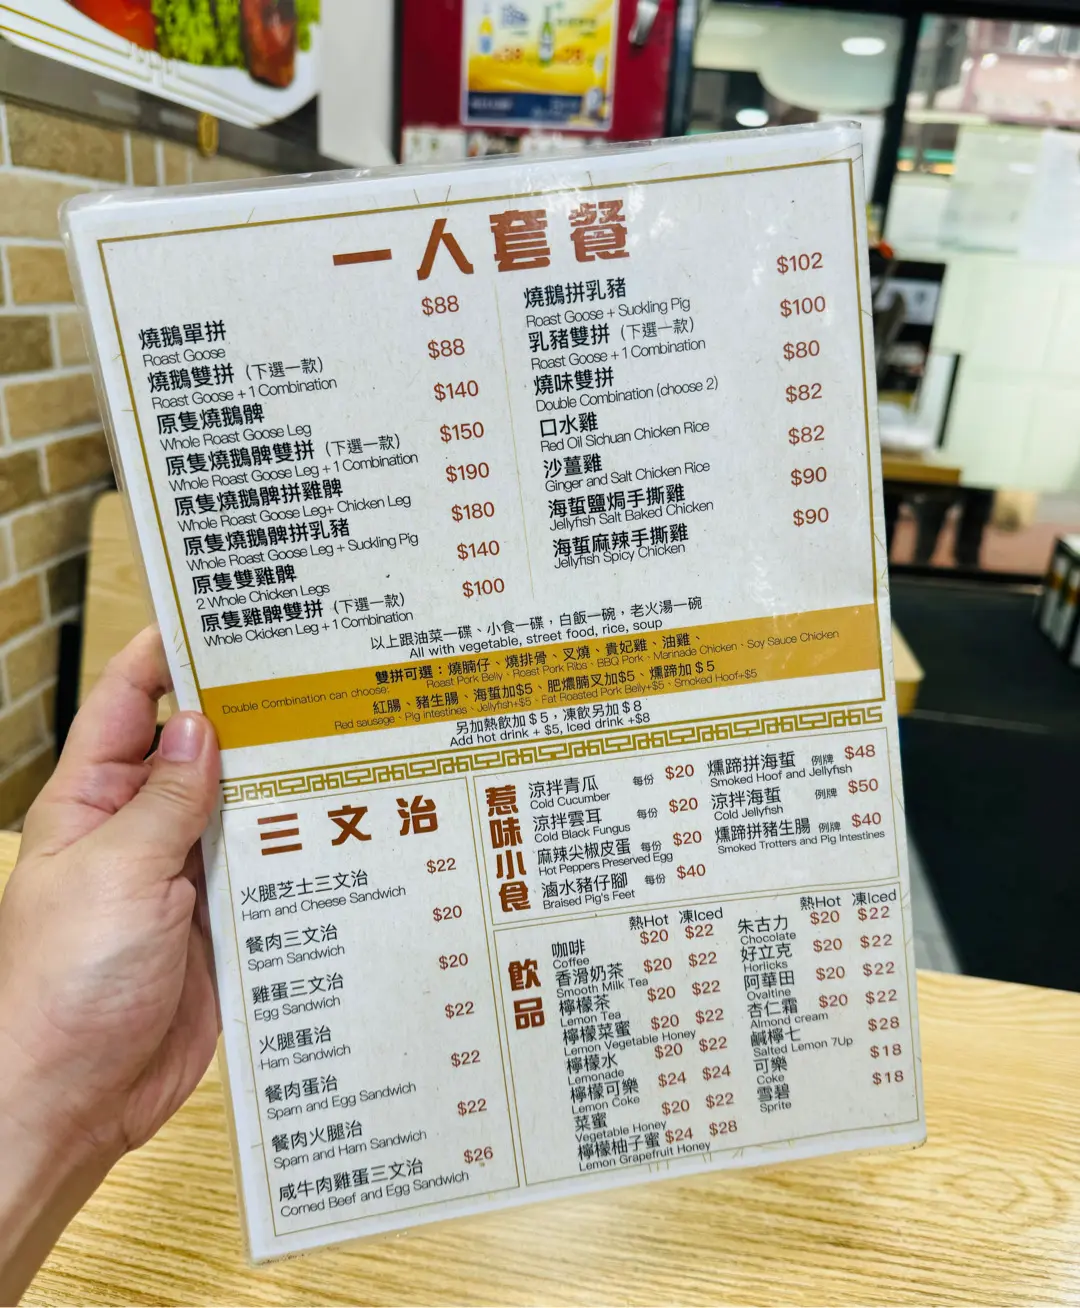 一人套餐
燒鵝單拼 $88
Roast Goose
燒鵝雙拼（下選一款） $88
Roast Goose + 1 Combination
原隻燒鵝髀 $140
Whole Roast Goose Leg
原隻燒鵝髀雙拼（下選一款） $150
Whole Roast Goose Leg + 1 Combination
原隻燒鵝髀拼雞髀 $190
Whole Roast Goose Leg+ Chicken Leg
原隻燒鵝髀拼乳豬 $180
Whole Roast Goose Leg + Suckling Pig
原隻雙雞髀 $140
2 Whole Chicken Legs
原隻雞髀雙拼（下選一款） $100
Whole Ckicken Leg + 1 Combination
燒鵝拼乳豬 $102
Roast Goose + Suckling Pig
乳豬雙拼（下選一款） $100
Roast Goose + 1 Combination
燒味雙拼 $80
Double Combination (choose 2)
口水雞 $82
Red Oil Sichuan Chicken Rice
沙薑雞 $82
Ginger and Salt Chicken Rice
海蜇鹽焗手撕雞 $90
Jellyfish Salt Baked Chicken
海蜇麻辣手撕雞 $90
Jellyfish Spicy Chicken
以上跟油菜一碟、小食一碟，白飯一碗，老火湯一碗
All with vegetable, street food, rice, soup
雙拼可選：燒腩仔、燒排骨、叉燒、貴妃雞、油雞、
Double Combination can choose: Roast Pork Belly、Roast Pork Ribs、BBQ Pork、Marinade Chicken、Soy Sauce Chicken
紅腸、豬生腸、海蜇加$5、肥燶腩叉加$5、燻蹄加$5
Red sausage、Pig intestines、Jellyfish+$5、Fat Roasted Pork Belly+$5、Smoked Hoof+$5
另加熱飲加$5，凍飲另加$8
Add hot drink + $5, Iced drink +$8
三文治
火腿芝士三文治 $22
Ham and Cheese Sandwich
餐肉三文治 $20
Spam Sandwich
雞蛋三文治 $20
Egg Sandwich
火腿蛋治 $22
Ham Sandwich
餐肉蛋治 $22
Spam and Egg Sandwich
餐肉火腿治 $22
Spam and Ham Sandwich
咸牛肉雞蛋三文治 $26
Corned Beef and Egg Sandwich
惹味小食
涼拌青瓜 每份 $20
Cold Cucumber
涼拌雲耳 每份 $20
Cold Black Fungus
麻辣尖椒皮蛋 每份 $20
Hot Peppers Preserved Egg
滷水豬仔腳 每份 $40
Braised Pig's Feet
燻蹄拼海蜇 例牌 $48
Smoked Hoof and Jellyfish
涼拌海蜇 例牌 $50
Cold Jellyfish
燻蹄拼豬生腸 例牌 $40
Smoked Trotters and Pig Intestines
飲品
熱Hot 凍Iced
咖啡 $20 $22
Coffee
香滑奶茶 $20 $22
Smooth Milk Tea
檸檬茶 $20 $22
Lemon Tea
檸檬菜蜜 $20 $22
Lemon Vegetable Honey
檸檬水 $20 $22
Lemonade
檸檬可樂 $24 $24
Lemon Coke
菜蜜 $20 $22
Vegetable Honey
檸檬柚子蜜 $24 $28
Lemon Grapefruit Honey
熱Hot 凍Iced
朱古力 $20 $22
Chocolate
好立克 $20 $22
Horlicks
阿華田 $20 $22
Ovaltine
杏仁霜 $20 $22
Almond cream
鹹檸七 $28
Salted Lemon 7Up
可樂 $18
Coke
雪碧 $18
Sprite